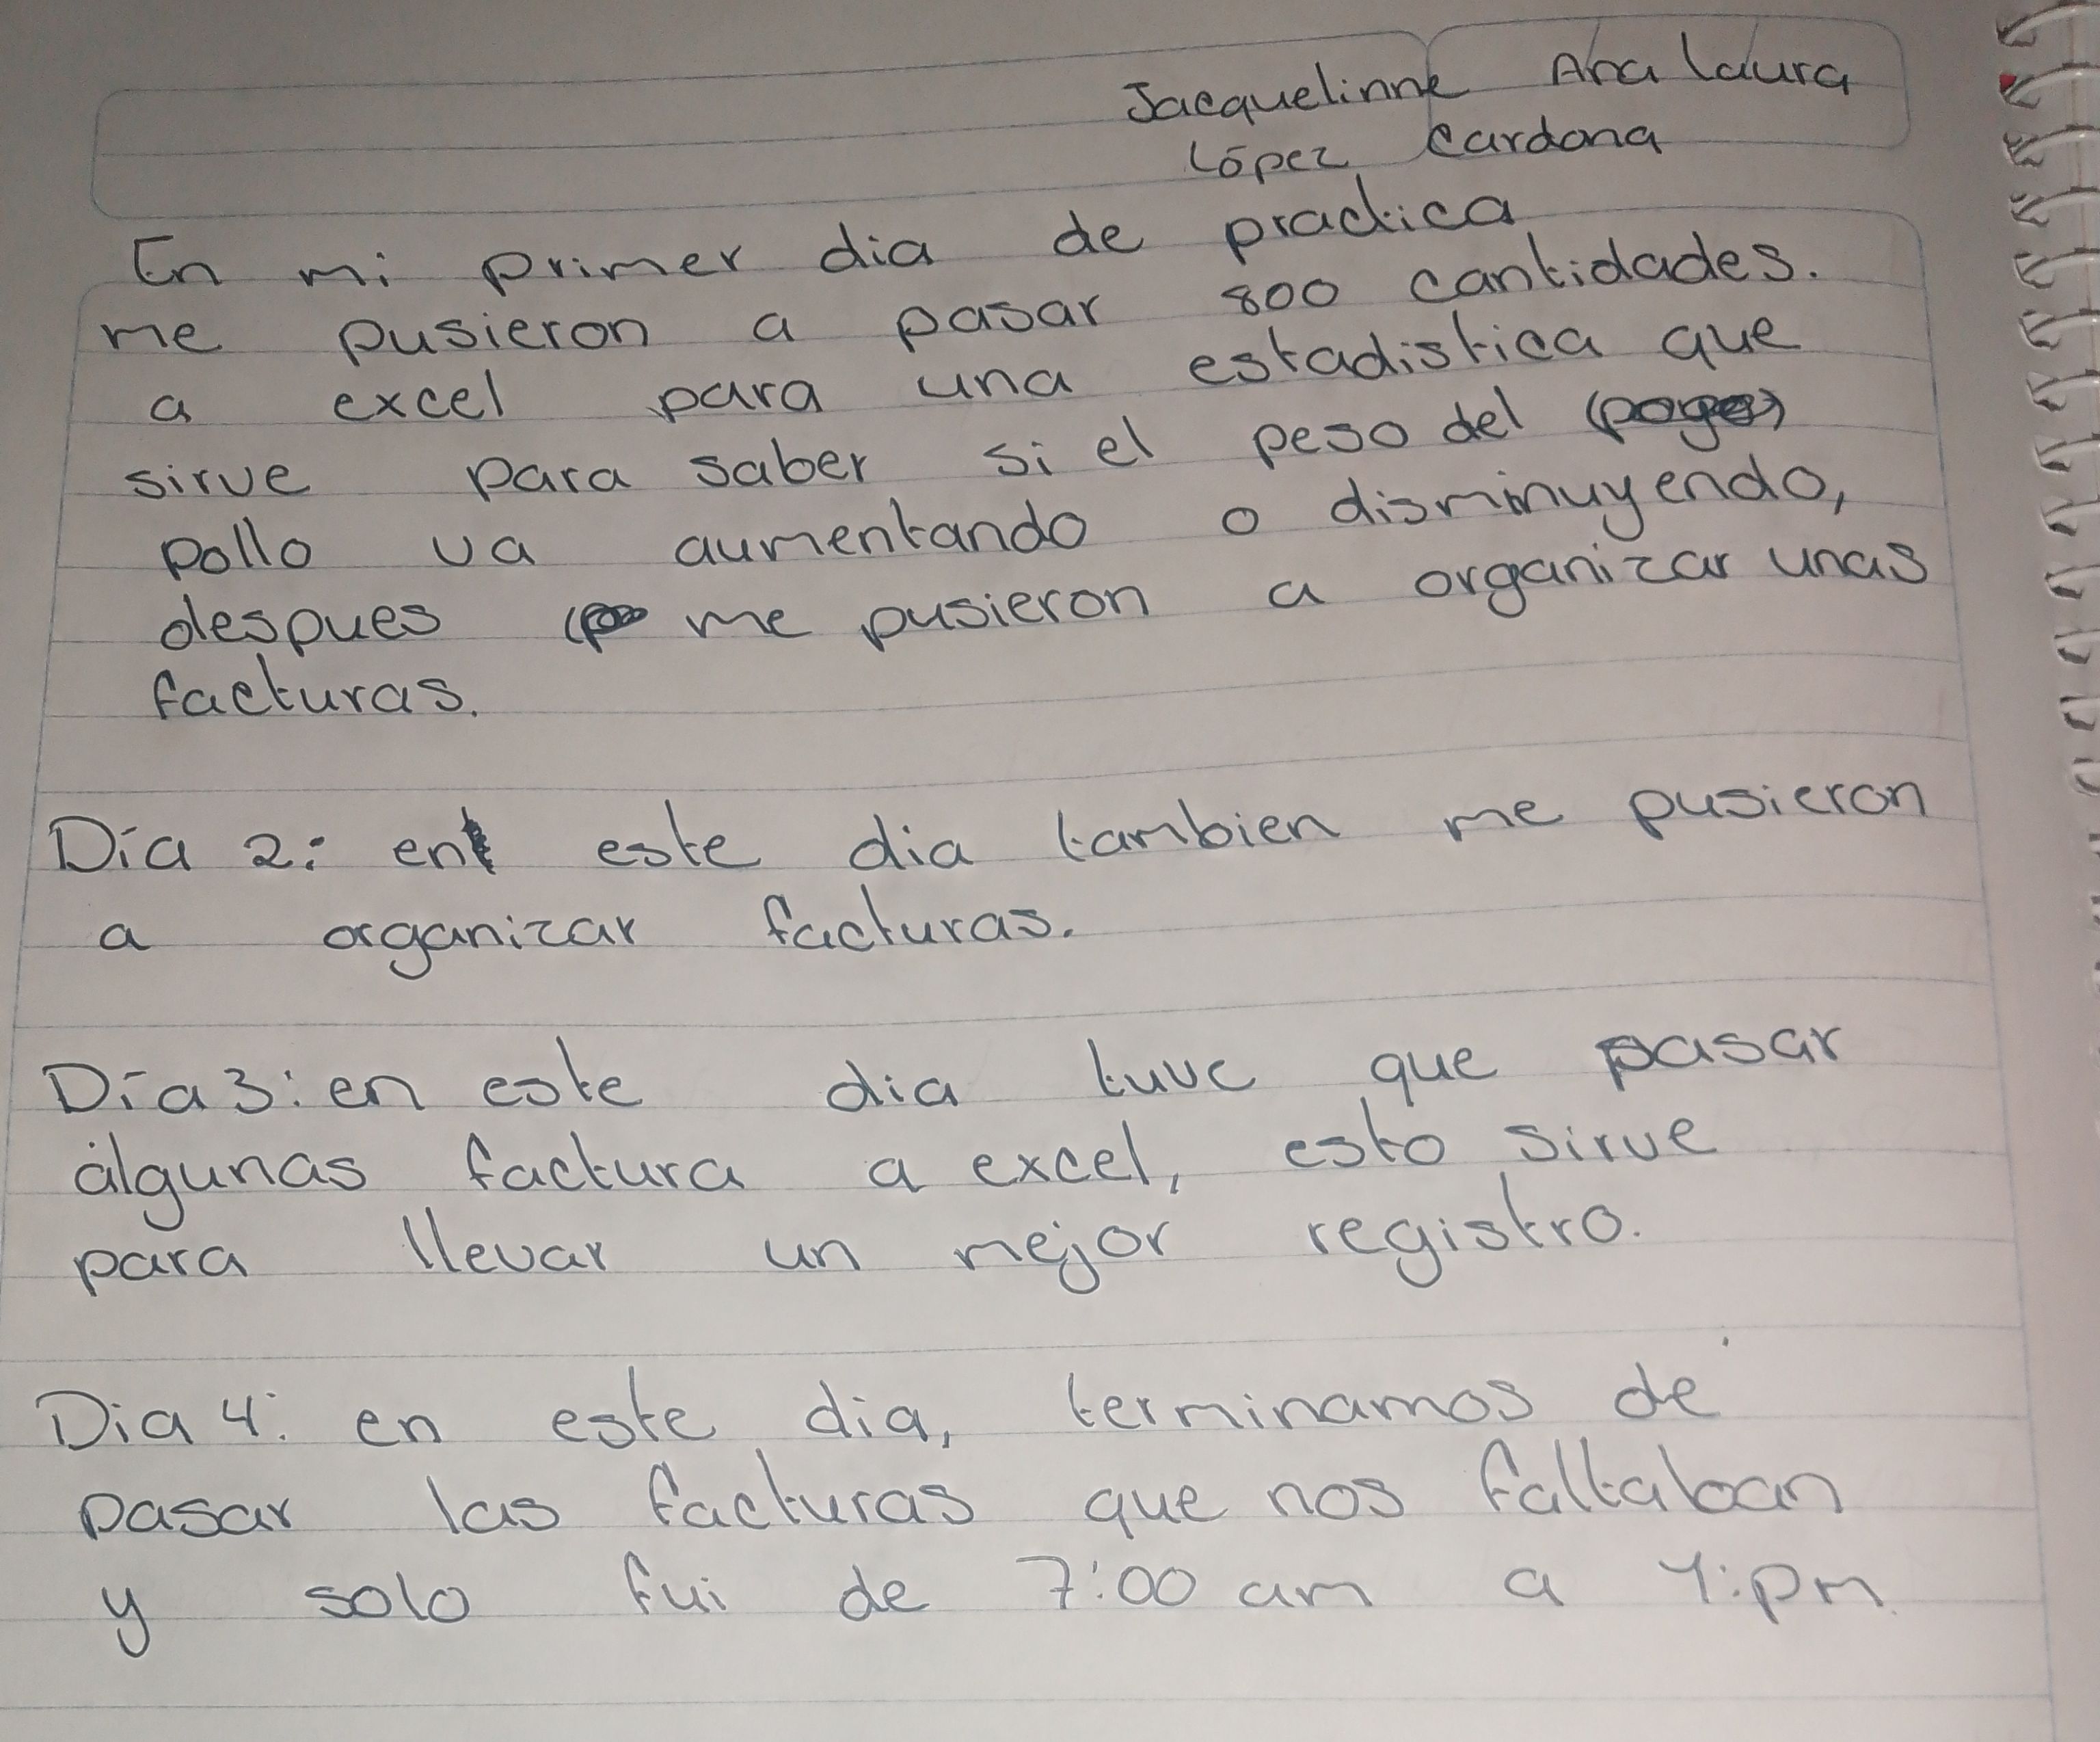 Jacquelinne Ana Laura
López Cardona
En mi primer dia de practica
me pusieron a pasar 800 cantidades.
a excel para una estadistica que
sirve para saber si el peso del
pollo va aumentando o disminuyendo,
despues me pusieron a organizar unas
facturas.
Día 2: en este dia tambien me pusieron
a organizar facturas.
Día 3: en este dia tuve que pasar
algunas factura a excel, esto sirve
para llevar un mejor registro.
Dia 4: en este dia, terminamos de
pasar las facturas que nos faltaban
y solo fui de 7:00 am a pm